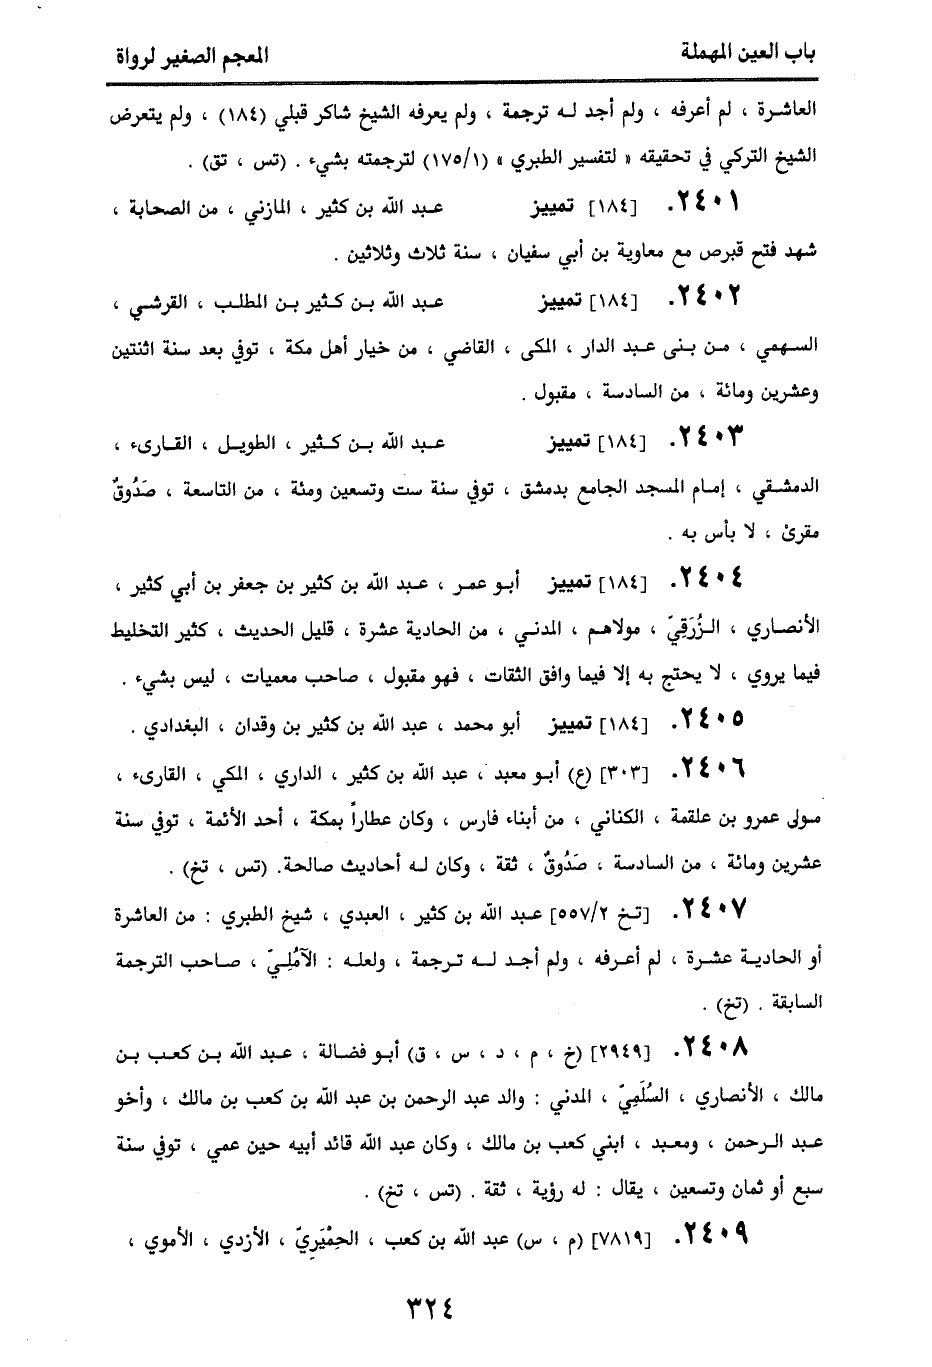 باب العين المهملة المعجم الصغير لرواة
العاشرة ، لم أعرفه ، ولم أجد له ترجمة ، ولم يعرفه الشيخ شاكر قبلي (١٨٤) ، ولم يتعرض
الشيخ التركي في تحقيقه « لتفسير الطبري » (١٧٥/١) لترجمته بشيء . (تس ، تق) .
٢٤٠١. [١٨٤] تمييز عبد الله بن كثير ، المازني ، من الصحابة ،
شهد فتح قبرص مع معاوية بن أبي سفيان ، سنة ثلاث وثلاثين .
٢٤٠٢. [١٨٤] تمييز عبد الله بن كثير بن المطلب ، القرشي ،
السهمي ، من بنى عبد الدار ، المكى ، القاضي ، من خيار أهل مكة ، توفي بعد سنة اثنتين
وعشرين ومائة ، من السادسة ، مقبول .
٢٤٠٣. [١٨٤] تمييز عبد الله بن كثير ، الطويل ، القارىء ،
الدمشقي ، إمام المسجد الجامع بدمشق ، توفي سنة ست وتسعين ومئة ، من التاسعة ، صَدُوقٌ
مقرئ ، لا بأس به .
٢٤٠٤. [١٨٤] تمييز أبو عمر ، عبد الله بن كثير بن جعفر بن أبي كثير ،
الأنصاري ، الزُرَقِيّ ، مولاهم ، المدني ، من الحادية عشرة ، قليل الحديث ، كثير التخليط
فيما يروي ، لا يحتج به إلا فيما وافق الثقات ، فهو مقبول ، صاحب معميات ، ليس بشيء .
٢٤٠٥. [١٨٤] تمييز أبو محمد ، عبد الله بن كثير بن وقدان ، البغدادي .
٢٤٠٦. [٣٠٣] (ع) أبو معبد ، عبد الله بن كثير ، الداري ، المكي ، القارىء ،
مولى عمرو بن علقمة ، الكناني ، من أبناء فارس ، وكان عطاراً بمكة ، أحد الأئمة ، توفي سنة
عشرين ومائة ، من السادسة ، صَدُوقٌ ، ثقة ، وكان له أحاديث صالحة. (تس ، تخ) .
٢٤٠٧. [تخ ٥٥٧/٢] عبد الله بن كثير ، العبدي ، شيخ الطبري : من العاشرة
أو الحادية عشرة ، لم أعرفه ، ولم أجد له ترجمة ، ولعله : الآمُلِيّ ، صاحب الترجمة
السابقة . (تخ) .
٢٤٠٨. [٢٩٤٩] (خ ، م ، د ، س ، ق) أبو فضالة ، عبد الله بن كعب بن
مالك ، الأنصاري ، السُلَمِيّ ، المدني : والد عبد الرحمن بن عبد الله بن كعب بن مالك ، وأخو
عبد الرحمن ، ومعبد ، ابني كعب بن مالك ، وكان عبد الله قائد أبيه حين عمي ، توفي سنة
سبع أو ثمان وتسعين ، يقال : له رؤية ، ثقة . (تس ، تخ) .
٢٤٠٩. [٧٨١٩] (م ، س) عبد الله بن كعب ، الحِمْيَرِيّ ، الأزدي ، الأموي ،
٣٢٤